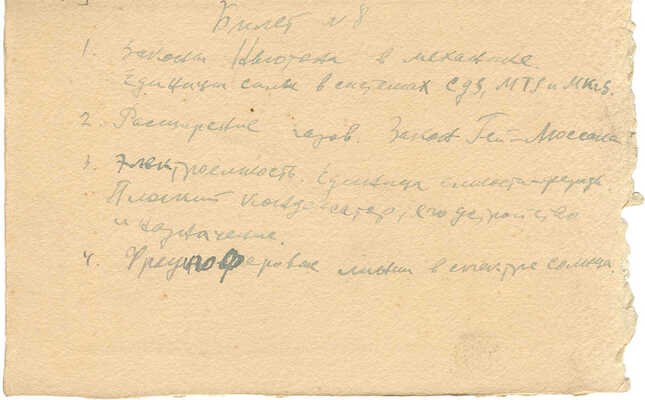 Билет № 8
1. Законы Ньютона в механике.
Единицы силы в системах CGS, MTS и MKS.
2. Расширение газов. Закон Гей-Люссака
3. Электроемкость. Единица емкости-фарада.
Плоский конденсатор, его устройство
и назначение.
4. Фраунгоферовы линии в спектре солнца.